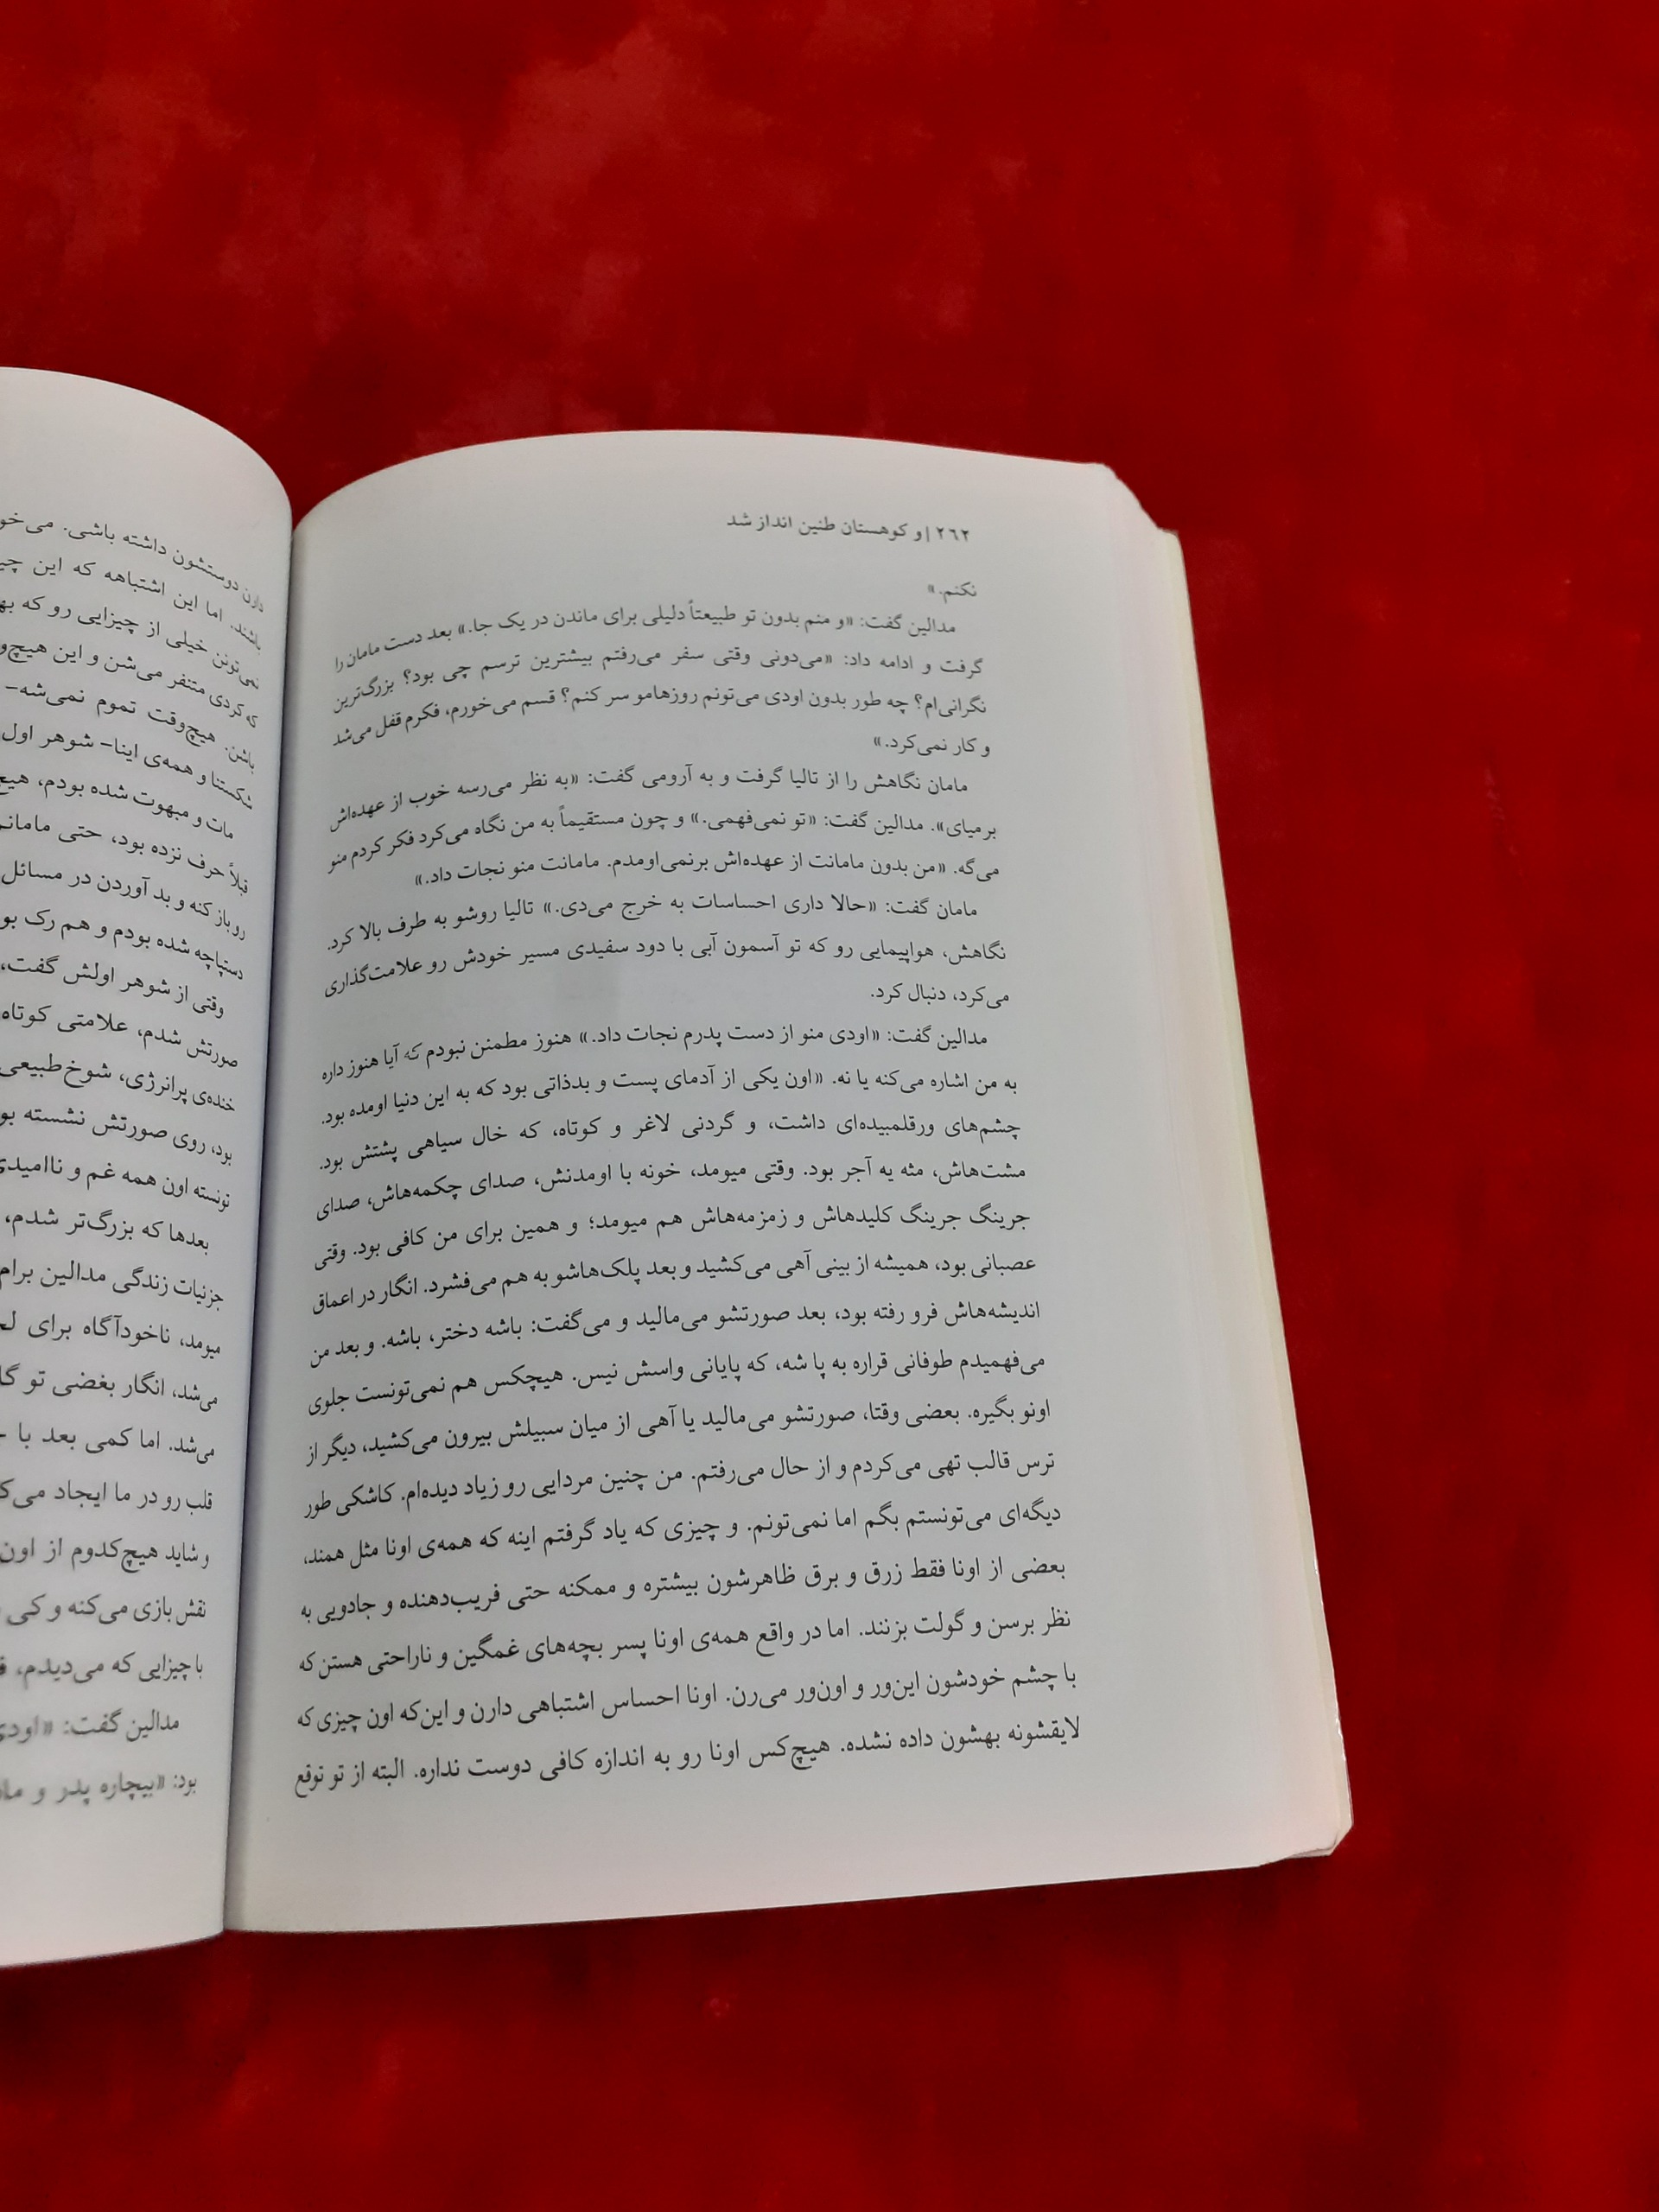 ۲۶۲ | و کوهستان طنین انداز شد
نکنم.»
مدالین گفت: «و منم بدون تو طبیعتاً دلیلی برای ماندن در یک جا.» بعد دست مامان را
گرفت و ادامه داد: «می‌دونی وقتی سفر می‌رفتم بیشترین ترسم چی بود؟ بزرگ‌ترین
نگرانی‌ام؟ چه طور بدون اودی می‌تونم روزهامو سر کنم؟ قسم می‌خورم، فکرم قفل می‌شد
و کار نمی‌کرد.»
مامان نگاهش را از تالیا گرفت و به آرومی گفت: «به نظر می‌رسه خوب از عهده‌اش
برمیای». مدالین گفت: «تو نمی‌فهمی.» و چون مستقیماً به من نگاه می‌کرد فکر کردم منو
می‌گه. «من بدون مامانت از عهده‌اش برنمی‌اومدم. مامانت منو نجات داد.»
مامان گفت: «حالا داری احساسات به خرج می‌دی.» تالیا روشو به طرف بالا کرد.
نگاهش، هواپیمایی رو که تو آسمون آبی با دود سفیدی مسیر خودش رو علامت‌گذاری
می‌کرد، دنبال کرد.
مدالین گفت: «اودی منو از دست پدرم نجات داد.» هنوز مطمنن نبودم که آیا هنوز داره
به من اشاره می‌کنه یا نه. «اون یکی از آدمای پست و بدذاتی بود که به این دنیا اومده بود.
چشم‌های ورقلمبیده‌ای داشت، و گردنی لاغر و کوتاه، که خال سیاهی پشتش بود.
مشت‌هاش، مثه یه آجر بود. وقتی میومد، خونه با اومدنش، صدای چکمه‌هاش، صدای
جرینگ جرینگ کلیدهاش و زمزمه‌هاش هم میومد؛ و همین برای من کافی بود. وقتی
عصبانی بود، همیشه از بینی آهی می‌کشید و بعد پلک‌هاشو به هم می‌فشرد. انگار در اعماق
اندیشه‌هاش فرو رفته بود، بعد صورتشو می‌مالید و می‌گفت: باشه دختر، باشه. و بعد من
می‌فهمیدم طوفانی قراره به پا شه، که پایانی واسش نیس. هیچکس هم نمی‌تونست جلوی
اونو بگیره. بعضی وقتا، صورتشو می‌مالید یا آهی از میان سبیلش بیرون می‌کشید، دیگر از
ترس قالب تهی می‌کردم و از حال می‌رفتم. من چنین مردایی رو زیاد دیده‌ام. کاشکی طور
دیگه‌ای می‌تونستم بگم اما نمی‌تونم. و چیزی که یاد گرفتم اینه که همه‌ی اونا مثل همند،
بعضی از اونا فقط زرق و برق ظاهرشون بیشتره و ممکنه حتی فریب‌دهنده و جادویی به
نظر برسن و گولت بزنند. اما در واقع همه‌ی اونا پسر بچه‌های غمگین و ناراحتی هستن که
با چشم خودشون این‌ور و اون‌ور می‌رن. اونا احساس اشتباهی دارن و این‌که اون چیزی که
لایقشونه بهشون داده نشده. هیچ‌کس اونا رو به اندازه کافی دوست نداره. البته از تو توقع
دارن دوستشون داشته باشی.
باشند. اما این اشتباهه که این
نمی‌تونن خیلی از چیزایی رو که
که کردی متنفر می‌شن و این
باشن. هیچ‌وقت تموم نمی‌شه-
شکستنا و همه‌ی اینا- شوهر اول
مات و مبهوت شده بودم،
قبلاً حرف نزده بود، حتی
رو باز کنه و بد آوردن در مسائل
دستپاچه شده بودم و هم رک
وقتی از شوهر اولش گفت،
صورتش شدم، علامتی کوتاه
خنده‌ی پرانرژی، شوخ‌طبعی
بود، روی صورتش نشسته
تونسته اون همه غم و
بعدها که بزرگ‌تر شدم،
جزئیات زندگی مدالین برام
میومد، ناخودآگاه برای
می‌شد، انگار بغضی تو
می‌شد. اما کمی بعد با
قلب رو در ما ایجاد
و شاید هیچ‌کدوم از اون
نقش بازی می‌کنه و کی
با چیزایی که می‌دیدم،
مدالین گفت:
بود: «بیچاره پدر و